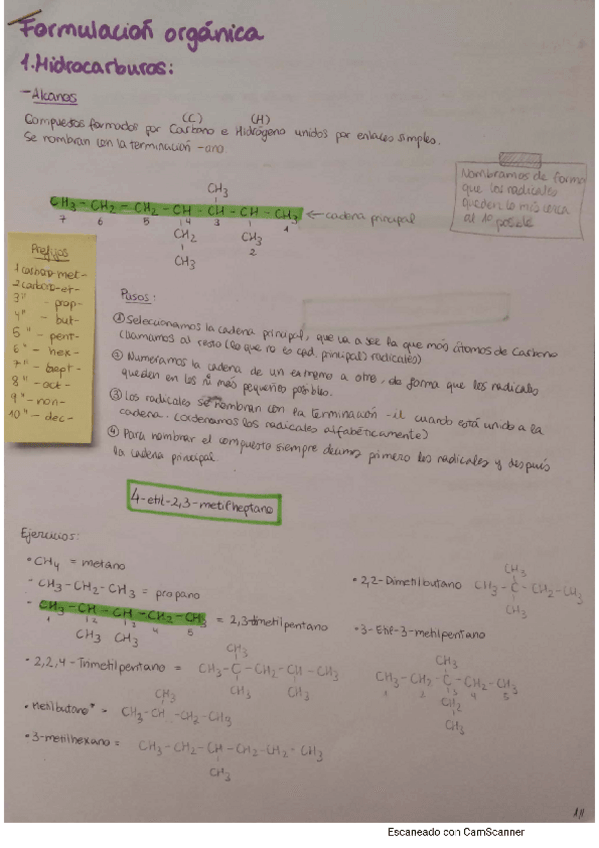 Formulación orgánica
1. Hidrocarburos:
- Alcanos
(C) (H)
Compuestos formados por Carbono e Hidrógeno unidos por enlaces simples.
Se nombran con la terminación -ano
Nombramos de forma
que los radicales
queden lo más cerca
al 1º posible
CH3
CH3 - CH2 - CH2 - CH - CH - CH - CH3 ← cadena principal
7 6 5 4 3 1
CH2 CH3
2
CH3
Prefijos
1 carbon- met-
2 carbon- et-
3 " - prop-
4 " - but-
5 " - pent-
6 " - hex-
7 " - hept-
8 " - oct-
9 " - non-
10 " - dec-
Pasos:
① Seleccionamos la cadena principal, que va a ser la que más átomos de carbono
(llamamos al resto (lo que no es cad. principal) radicales)
② Numeramos la cadena de un extremo a otro, de forma que los radicales
queden en los nº más pequeños posibles.
③ Los radicales se nombran con la terminación -il cuando está unido a la
cadena. (ordenamos los radicales alfabéticamente)
④ Para nombrar el compuesto siempre decimos primero los radicales y después
la cadena principal.
4-etil-2,3-metilheptano
Ejercicios:
• CH4 = metano
- CH3 - CH2 - CH3 = propano
- CH3 - CH - CH - CH2 - CH3 = 2,3-dimetilpentano
1 2 3 4 5
CH3 CH3
CH3
• 2,2,4 - Trimetilpentano = CH3 - C - CH2 - CH - CH3
CH3 CH3
CH3
• Metilbutano* = CH3 - CH - CH2 - CH3
• 3-metilhexano = CH3 - CH2 - CH - CH2 - CH2 - CH3
CH3
CH3
• 2,2-Dimetilbutano CH3 - C - CH2 - CH3
CH3
• 3-Etil-3-metilpentano
CH3
CH3 - CH2 - C - CH2 - CH3
1 2 3 4 5
CH2
CH3
Escaneado con CamScanner